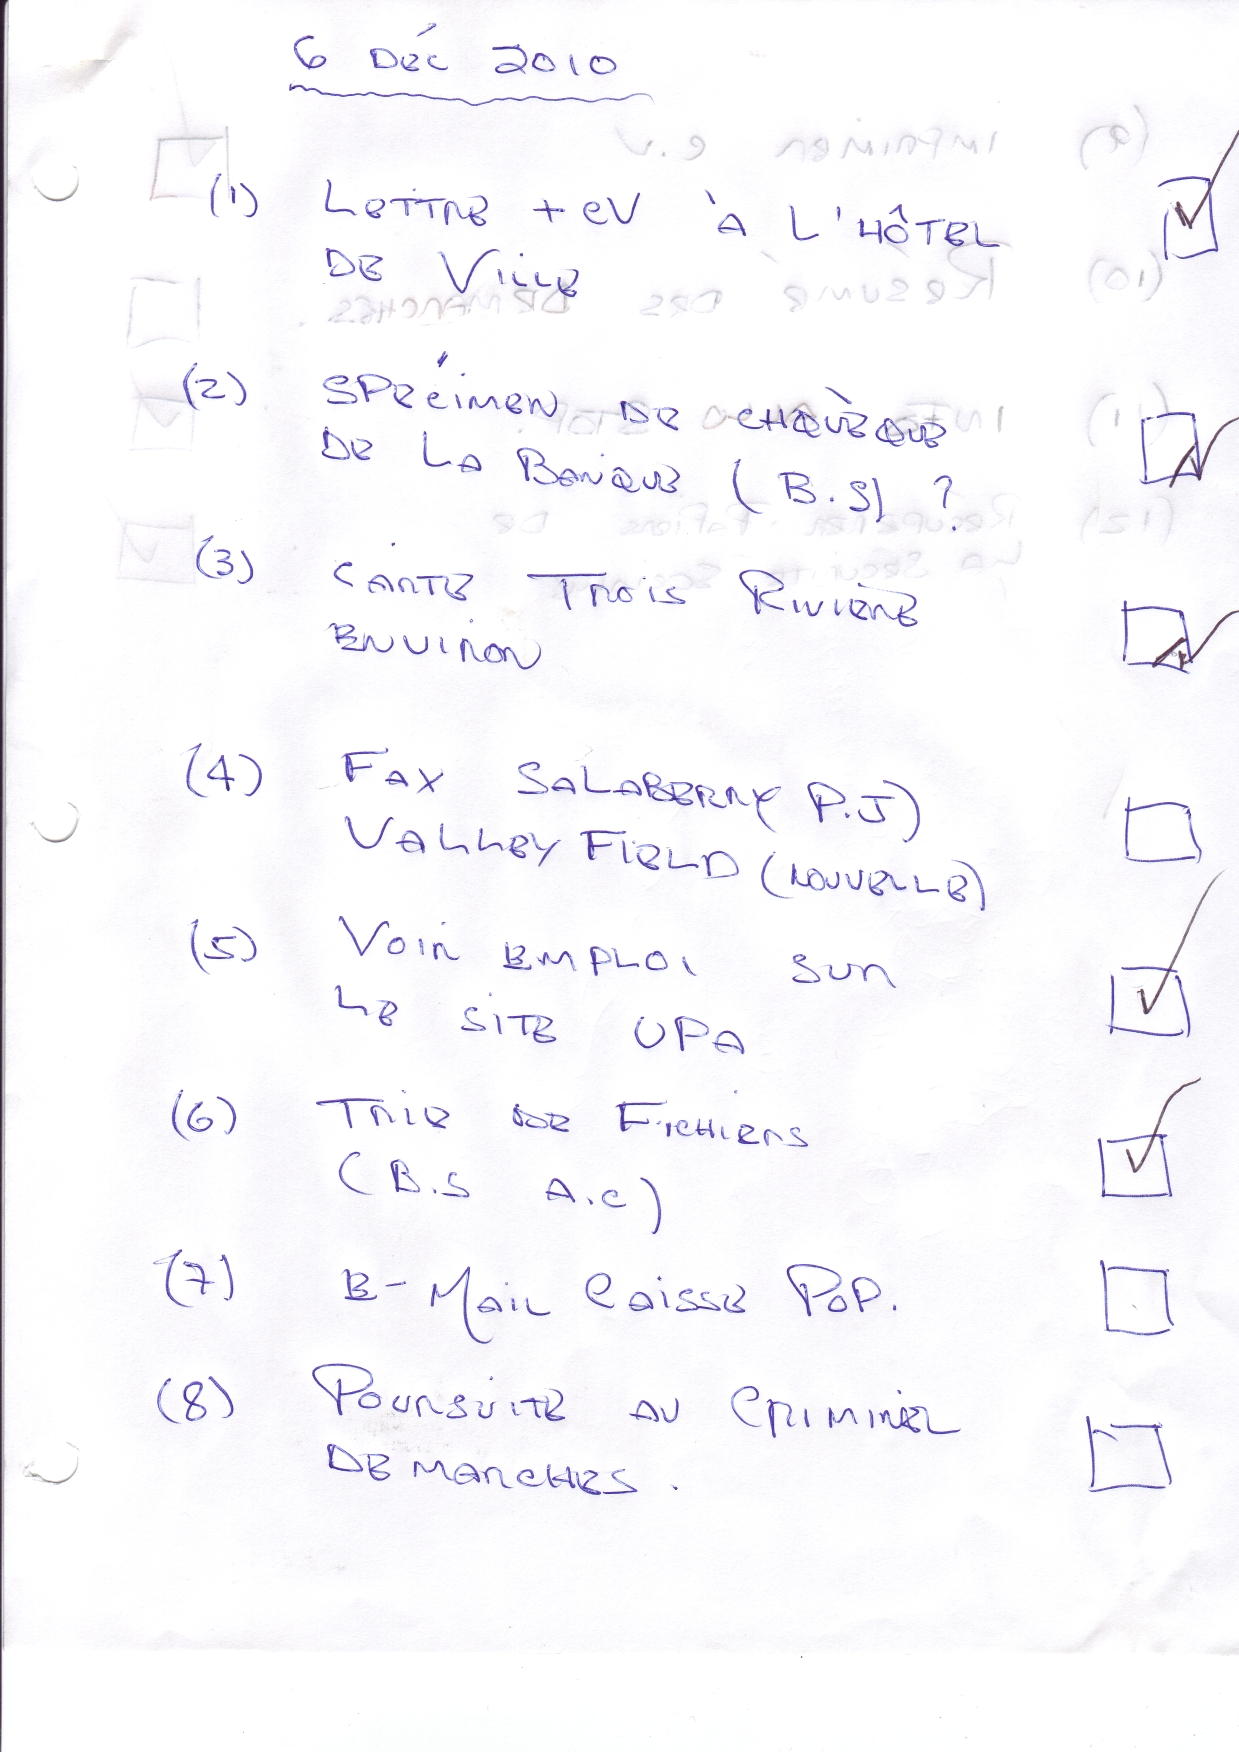 6 Déc 2010
(1) LETTRE + CV À L'HÔTEL
DE VILLE
(2) SPÉCIMEN DE CHÈQUE
DE LA BANQUE (B.S) ?
(3) CARTE TROIS RIVIÈRE
ENVIRON
(4) FAX SALABERRY P.J)
VALLLEYFIELD (NOUVELLE)
(5) VOIR EMPLOI SUR
LE SITE UPA
(6) TRIE DE FICHIERS
(B.S A.C)
(7) E-MAIL CAISSE POP.
(8) POURSUITE AU CRIMINEL
DEMARCHES.
(9) IMPRIMER C.V
(10) RÉSUMÉ DES DEMARCHES.
(11)
(12) DE
LA